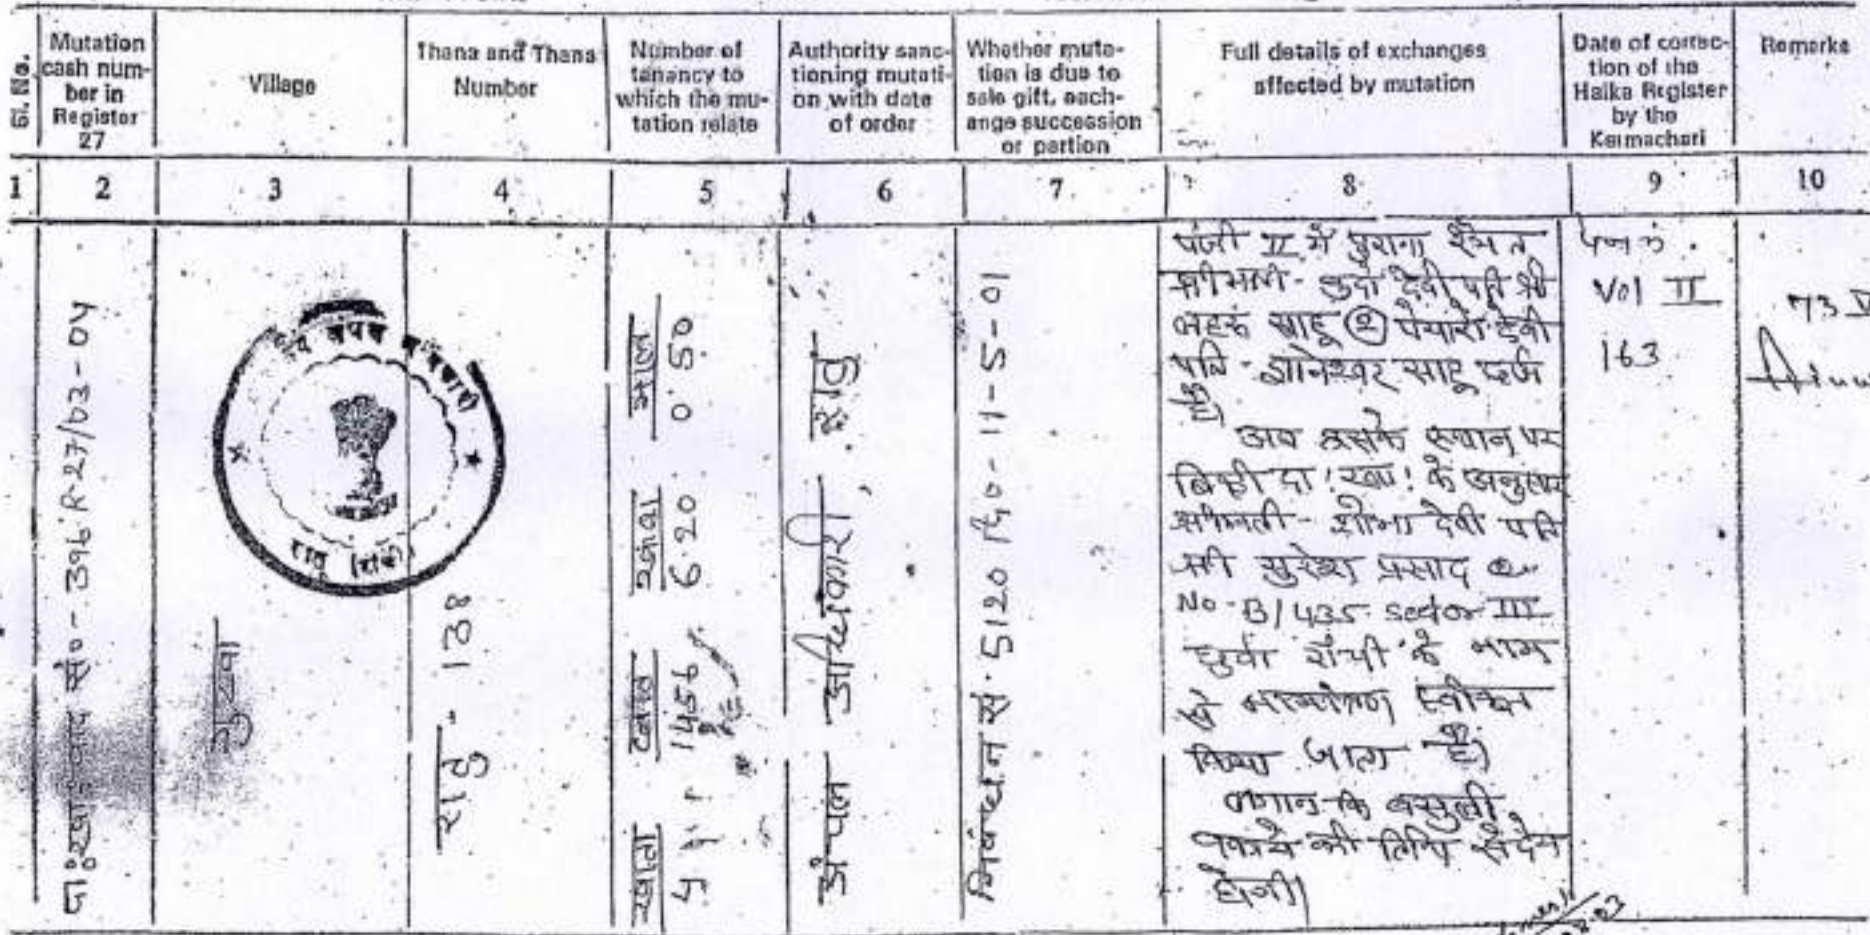 Sl. No.
Mutation cash num-ber in Register 27
Village
Thana and Thana Number
Number of tenancy to which the mu-tation relate
Authority sanc-tioning mutati-on with date of order
Whether muta-tion is due to sale gift, each-ange succession or partion
Full details of exchanges affected by mutation
Date of correc-tion of the Halka Register by the Karmachari
Remarks
1 2 3 4 5 6 7 8 9 10
दा० खा० वाद सं०- 396 R-27/03-04
रातु (रांची)
गुटवा
रातु - 138
खाता खेसरा रकवा माल
1456 6.20 0.50
अंचल अधिकारी रातु
सं. 5120 दि०- 11-5-01
पंजी II में पुराना रैयत
श्रीमती - देवी पति श्री
साहू ② देवी
पति - ज्ञानेश्वर साहू दर्ज
है।
अब उसके स्थान पर
बिक्री दा! खा! के अनुसार
श्रीमती - शोभा देवी पति
श्री सुरेश प्रसाद
No - B/435 - Sector III
धुर्वा राँची के नाम
से नामांतरण स्वीकृत
किया जाता है।
लगान कि वसुली
की तिथि से देय
होगी।
Vol II
163
73